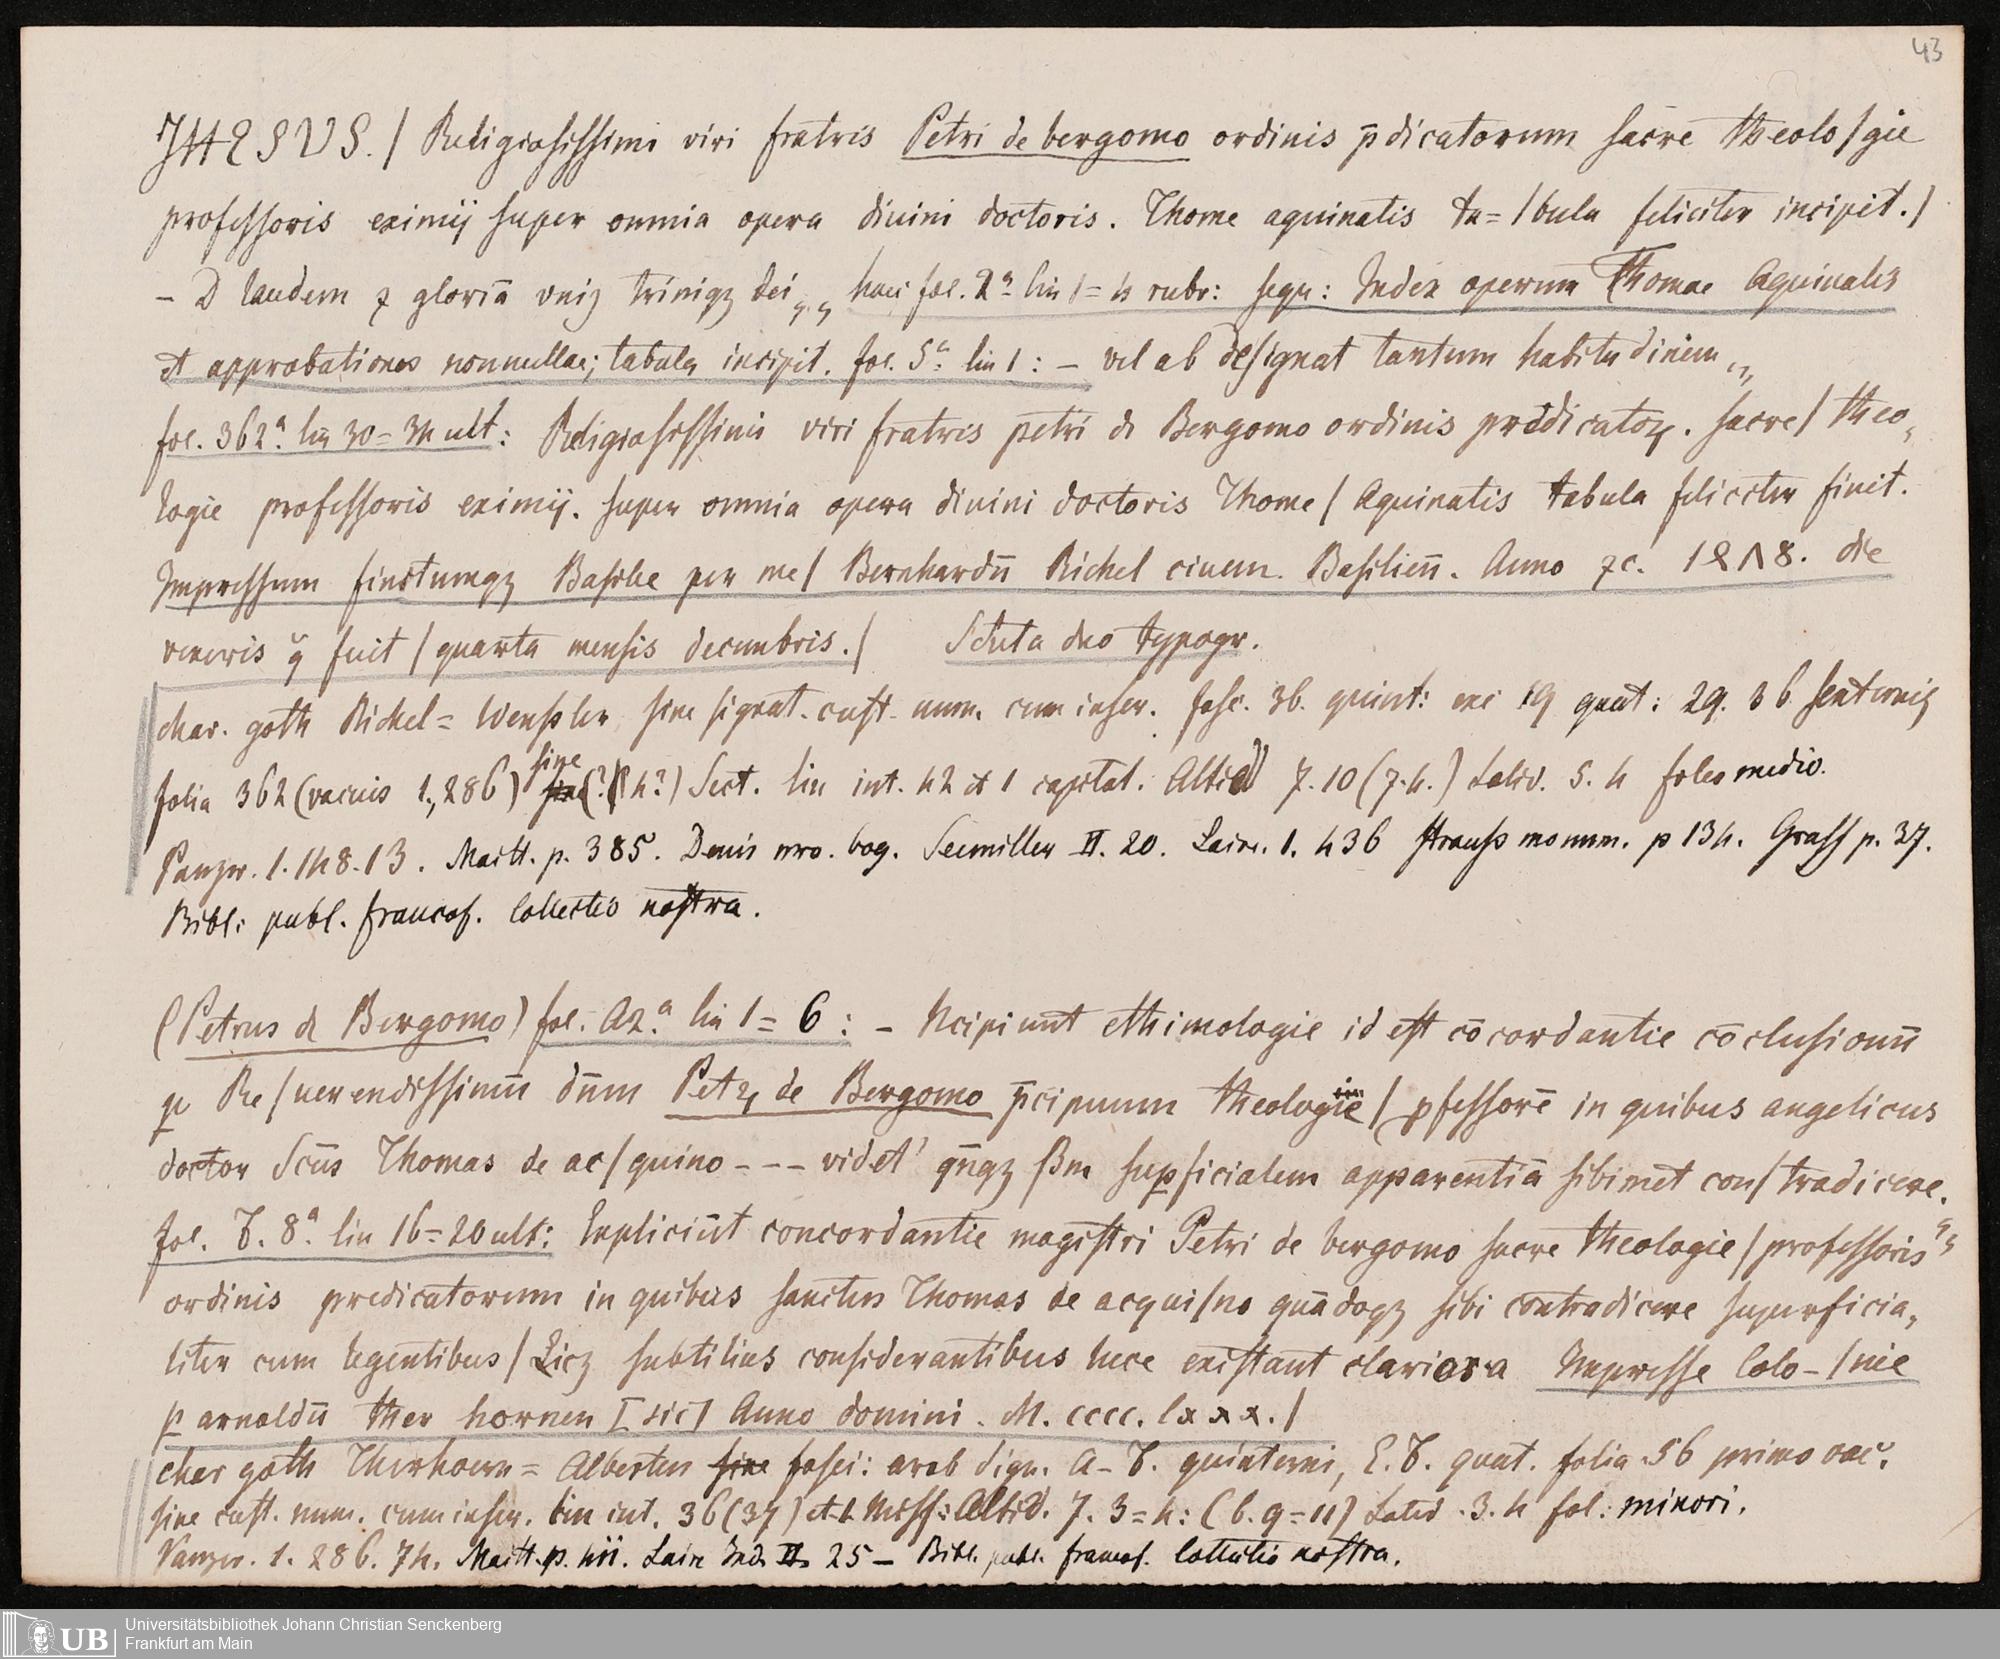 43
JHESVS. / Religiosissimi viri fratris Petri de bergomo ordinis p̄dicatorum sacre theolo/gie
professoris eximij super omnia opera diuini doctoris. Thome aquinatis ta=/bula feliciter incipit./
- D laudem ⁊ gloriā vniꝫ trinigꝫ dei „ haec fol. 2ª lin 1=4 rubr: sequ: Index operum Thomae Aquinatis
et approbationes nonnullae; tabula incipit. fol. 5ª lin 1: - vel ab designat tantum habitudinem „
fol. 362ª lin 30=34 ult: Religiosissimi viri fratris petri de Bergomo ordinis predicatoꝝ. sacre/ theo,
logie professoris eximij. super omnia opera diuini doctoris Thome/ Aquinatis tabula feliciter finit.
Impressum finitumqꝫ Basilee per me/ Bernhardū Richel ciuem. Basilieñ. Anno ⁊c. 1478. die
veneris q̄ fuit / quarta mensis decembris./ Scuta duo typogr.
char. goth Richel=Wenssler sine signat. cust. num. cum inscr. fasc. 36. quint: exc 19 quat: 29. 36 sexternis
folia 362 (vacuis 1., 286) sine (? 4?) Sect. lin int. 42 et 1 capital. Altid 7. 10 (7. 4.) Latid. 5. 4 folio medio.
Panzer. 1. 148. 13. Maitt. p. 385. Denis nro. bog. Seemiller II. 20. Laire. 1. 436 Strauss monum. p 134. Grass p. 37.
Bibl: publ. francof. Collectio nostra.
(Petrus de Bergomo) fol. A2.ª lin 1=6: - Ncipiunt ethimologie id est cōcordantie cōclusionū
ꝑ Re/uerendissimū dn̄m Petꝝ de Bergomo p̄cipuum theologie / ꝓfessorē in quibus angelicus
doctor Scūs Thomas de ac/quino --- videt' qn̄qꝫ ßm suꝑficialem apparentiā sibimet con/tradicere.
fol. F. 8ª. lin 16=20 ult: Expliciūt concordantie magistri Petri de bergomo sacre theologie / professoris
ordinis predicatorum in quibus sanctus Thomas de acqui/no quādoqꝫ sibi contradicere superficia,
liter cum legentibus / Licꝫ subtilius considerantibus luce existant clariora Impresse Colo-/nie
ꝑ arnoldū ther hornen [sic] Anno domini. M. cccc. lxxx./
char goth Therhoern=Alberten fasci: arab sign. A-F. quinterni, E. F. quat. folia 56 primo vac.
sine cust. num. cum inscr. lin int. 36 (37) et 1. Miss: Altid. 7. 3=4: (6. 9=11) Latid. 3. 4 fol: minori.
Panzer. 1. 286. 74. Maitt. p. 411. Laire Ind. II. 25 - Bibl. publ. francof. Collectio nostra.
UB
Universitätsbibliothek Johann Christian Senckenberg
Frankfurt am Main